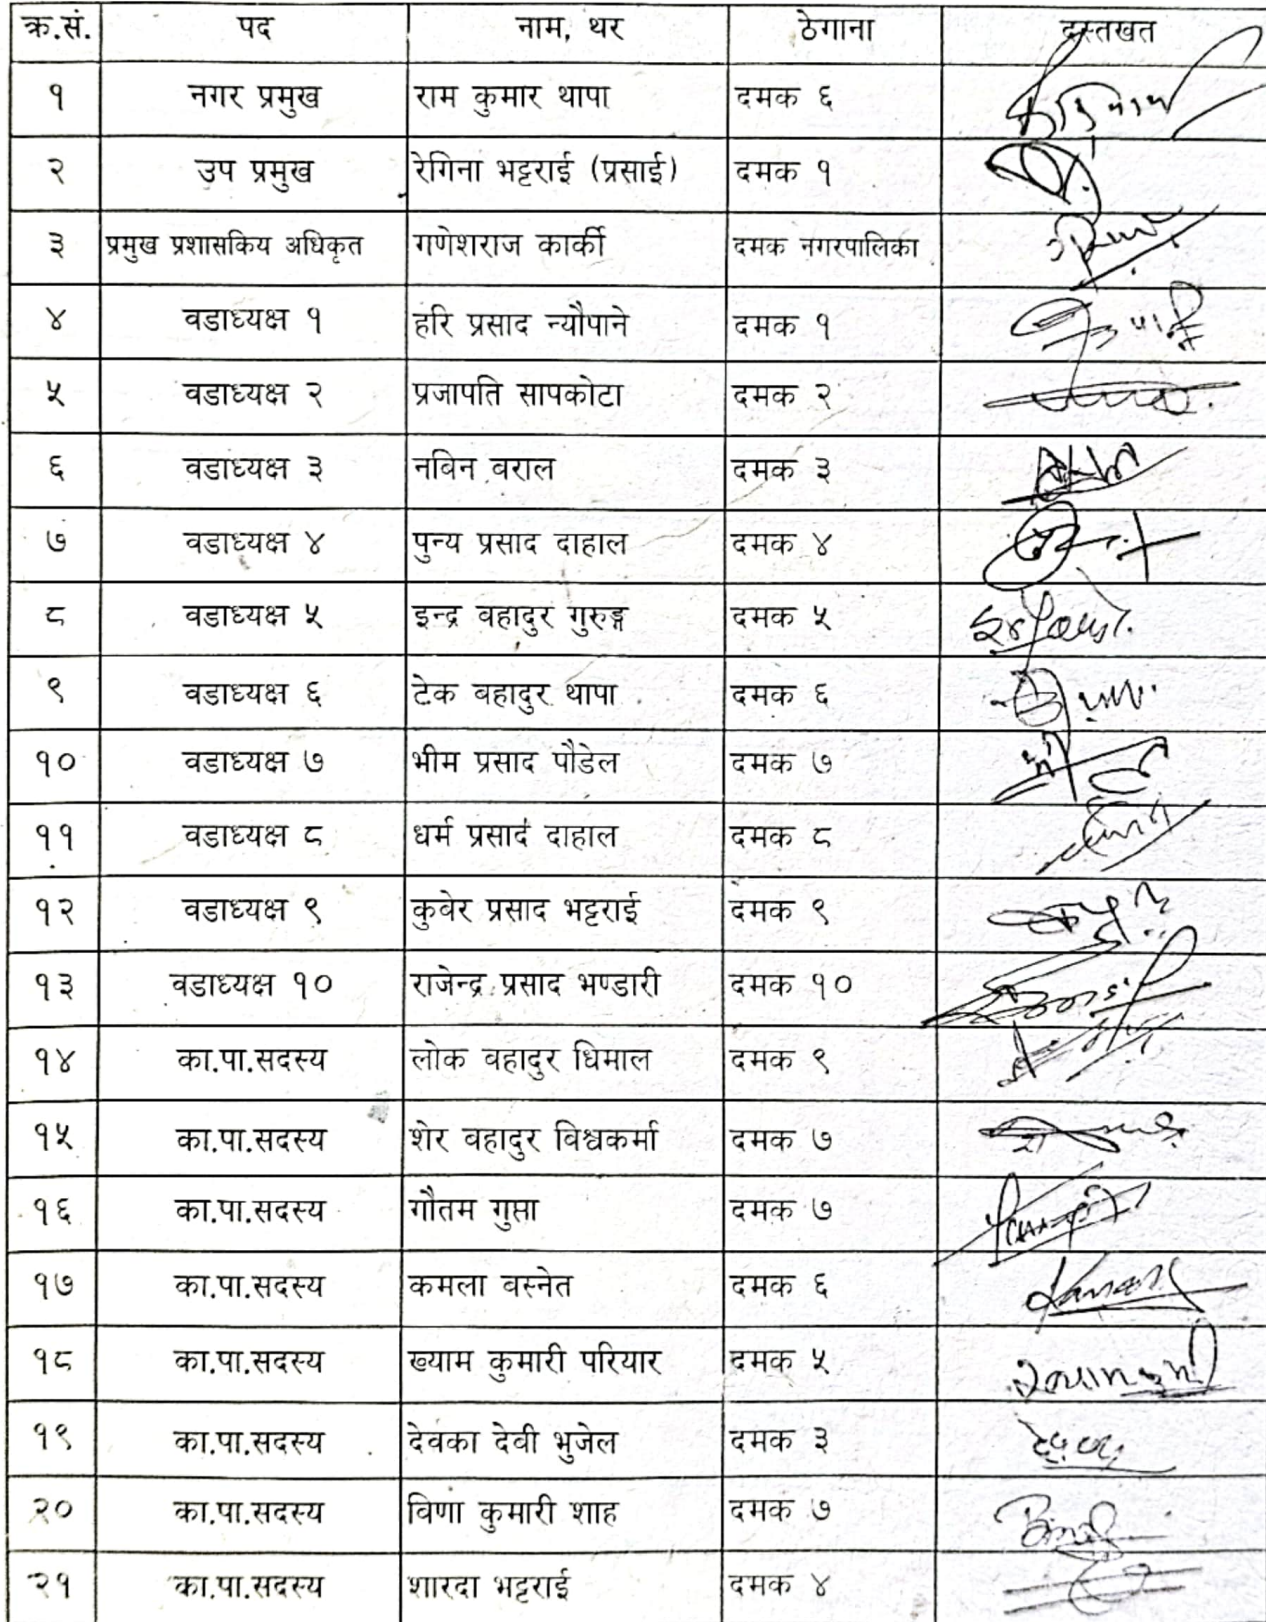 क्र.सं. पद नाम, थर ठेगाना दस्तखत
१ नगर प्रमुख राम कुमार थापा दमक ६
२ उप प्रमुख रेगिना भट्टराई (प्रसाई) दमक १
३ प्रमुख प्रशासकिय अधिकृत गणेशराज कार्की दमक नगरपालिका
४ वडाध्यक्ष १ हरि प्रसाद न्यौपाने दमक १
५ वडाध्यक्ष २ प्रजापति सापकोटा दमक २
६ वडाध्यक्ष ३ नविन वराल दमक ३
७ वडाध्यक्ष ४ पुन्य प्रसाद दाहाल दमक ४
८ वडाध्यक्ष ५ इन्द्र वहादुर गुरुङ्ग दमक ५
९ वडाध्यक्ष ६ टेक वहादुर थापा दमक ६
१० वडाध्यक्ष ७ भीम प्रसाद पौडेल दमक ७
११ वडाध्यक्ष ८ धर्म प्रसाद दाहाल दमक ८
१२ वडाध्यक्ष ९ कुवेर प्रसाद भट्टराई दमक ९
१३ वडाध्यक्ष १० राजेन्द्र प्रसाद भण्डारी दमक १०
१४ का.पा.सदस्य लोक वहादुर धिमाल दमक ९
१५ का.पा.सदस्य शेर वहादुर विश्वकर्मा दमक ७
१६ का.पा.सदस्य गौतम गुप्ता दमक ७
१७ का.पा.सदस्य कमला वस्नेत दमक ६
१८ का.पा.सदस्य ख्याम कुमारी परियार दमक ५
१९ का.पा.सदस्य देवका देवी भुजेल दमक ३
२० का.पा.सदस्य विणा कुमारी शाह दमक ७
२१ का.पा.सदस्य शारदा भट्टराई दमक ४